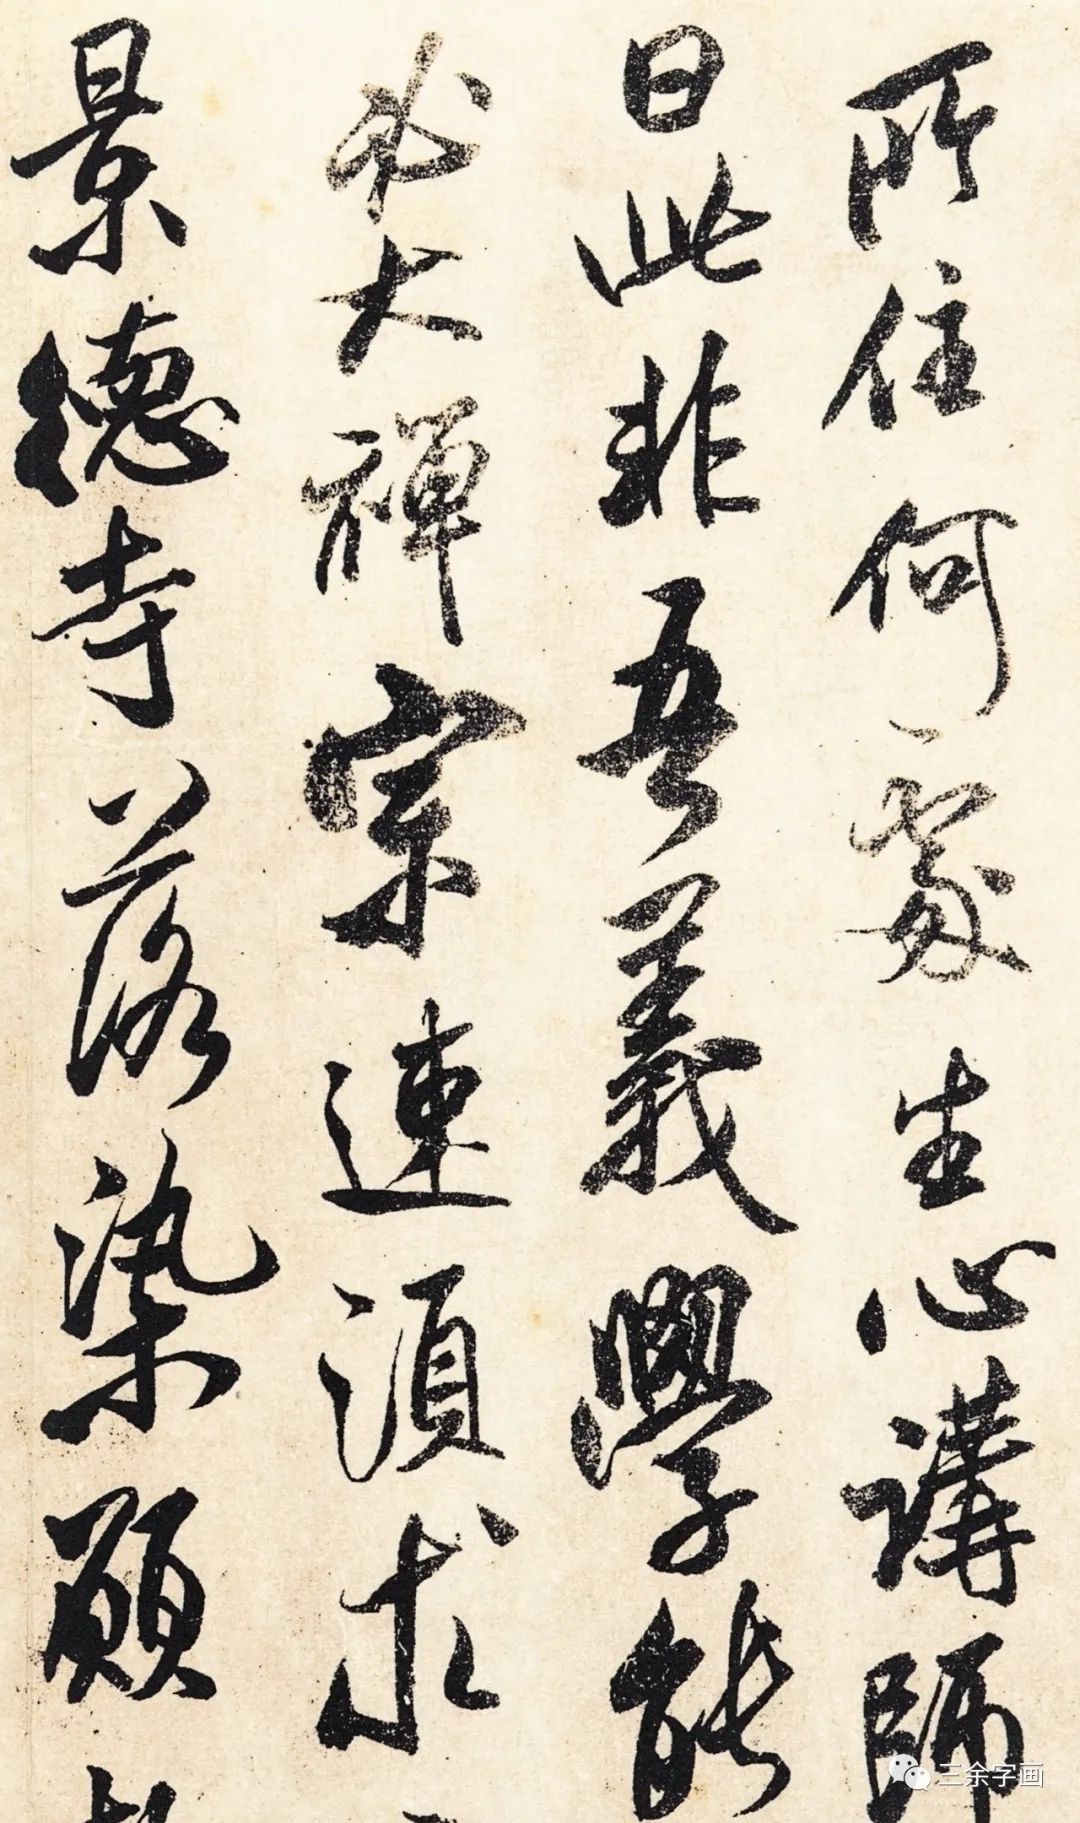 所住何處生心講師
曰此非吾義學能
尔大禪宗連須求
景德寺落染願
三余字画